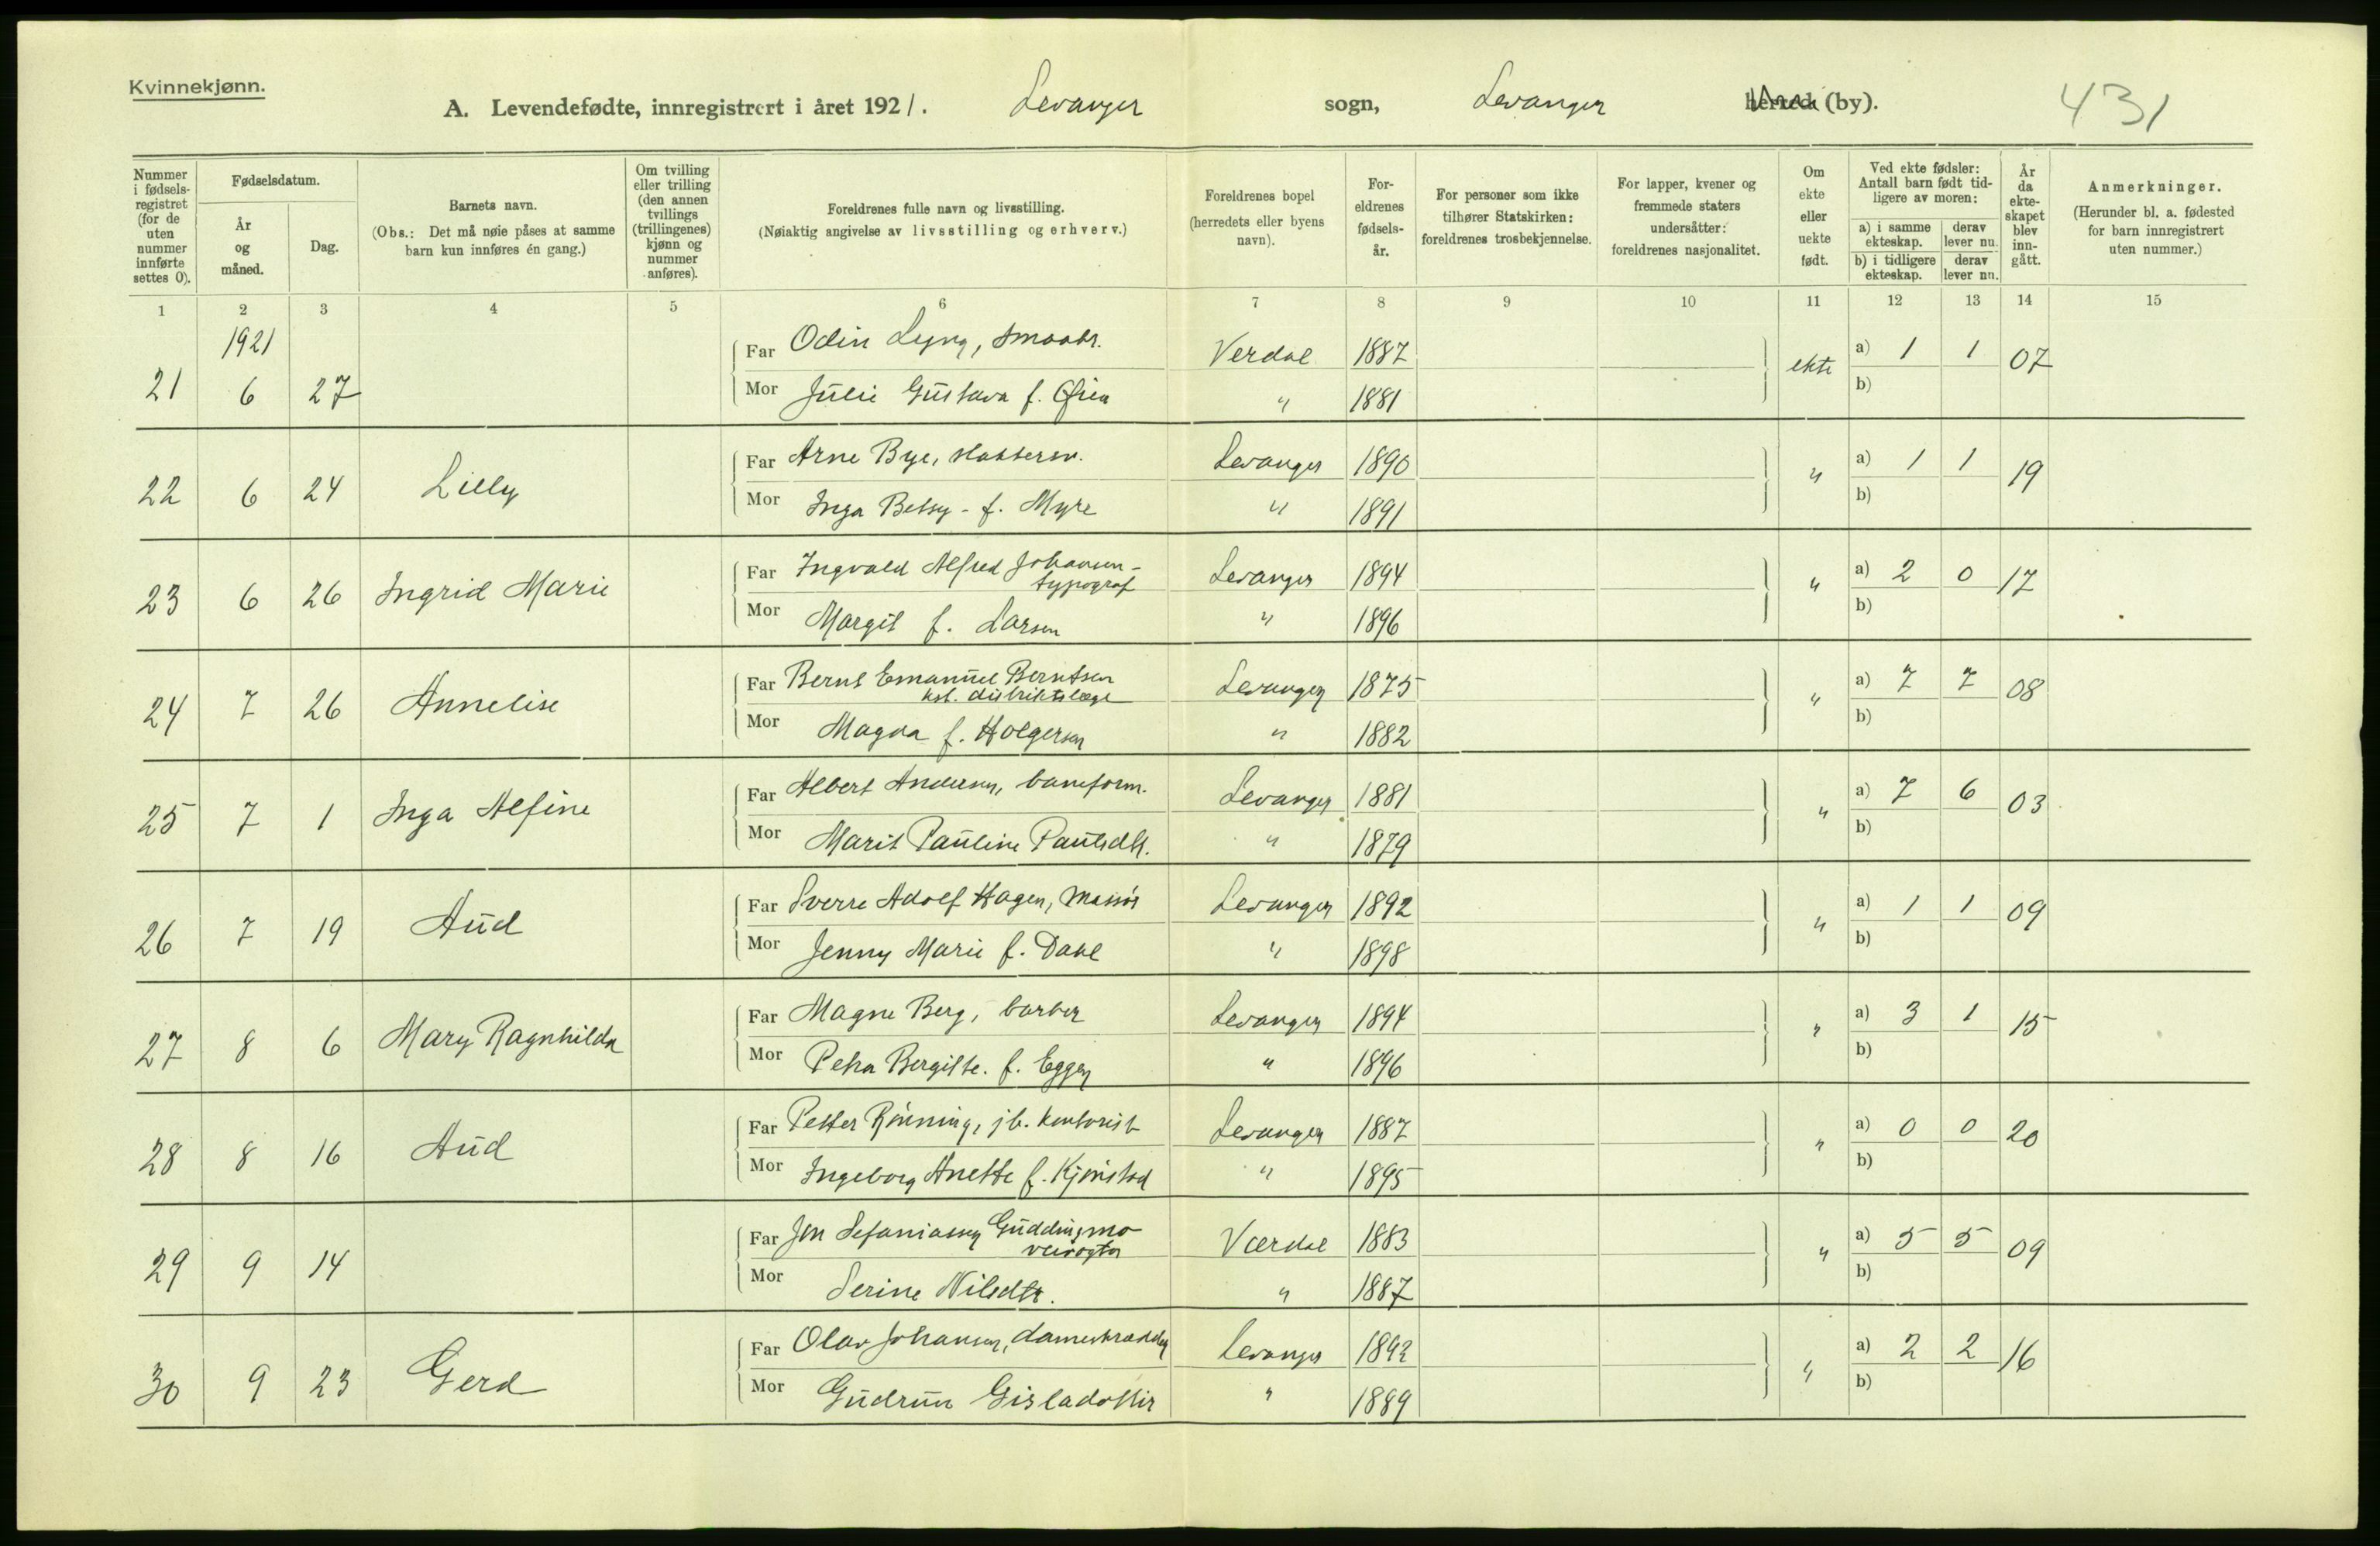 Kvinnekjønn.
A. Levendefødte, innregistrert i året 1921. Levanger sogn, Levanger (by). 431
Nummer i fødselsregistret (for de uten nummer innførte settes 0).
Fødselsdatum.
År og måned.
Dag.
Barnets navn.
(Obs.: Det må nøie påses at samme barn kun innføres én gang.)
Om tvilling eller trilling (den annen tvillings (trillingenes) kjønn og nummer anføres).
Foreldrenes fulle navn og livsstilling.
(Nøiaktig angivelse av livsstilling og erhverv.)
Foreldrenes bopel (herredets eller byens navn).
Foreldrenes fødselsår.
For personer som ikke tilhører Statskirken: foreldrenes trosbekjennelse.
For lapper, kvener og fremmede staters undersåtter: foreldrenes nasjonalitet.
Om ekte eller uekte født.
Ved ekte fødsler: Antall barn født tidligere av moren:
a) i samme ekteskap. derav lever nu.
b) i tidligere ekteskap. derav lever nu.
År da ekteskapet blev inngått.
Anmerkninger.
(Herunder bl. a. fødested for barn innregistrert uten nummer.)
1 2 3 4 5 6 7 8 9 10 11 12 13 14 15
1921
Far Odin Lyng, smaabr. Verdal 1887 ekte a) 1 1 07
21 6 27 Mor Julie Gustava f. Øien " 1881 b)
Far Arne Bye, slaktersv. Levanger 1890 " a) 1 1 19
22 6 24 Lilly Mor Inga Betsy - f. Myre " 1891 b)
Far Ingvald Alfred Johansen - Levanger 1894 " a) 2 0 17
typograf
23 6 26 Ingrid Marie Mor Margit f. Larsen " 1896 b)
Far Bernt Emanuel Berntsen Levanger 1875 " a) 7 7 08
kst. distriktslæge
24 7 26 Annelise Mor Magda f. Holgersen " 1882 b)
Far Albert Andersen, baneform. Levanger 1881 " a) 7 6 03
25 7 1 Inga Alfine Mor Marit Pauline Paulsdtr. " 1879 b)
Far Sverre Adolf Hagen, massør Levanger 1892 " a) 1 1 09
26 7 19 Aud Mor Jenny Marie f. Dahl " 1898 b)
Far Magne Berg, barber Levanger 1894 " a) 3 1 15
27 8 6 Mary Ragnhilda Mor Petra Bergitte. f. Eggen " 1896 b)
Far Petter Rønning, jb. kontorist Levanger 1887 " a) 0 0 20
28 8 16 Aud Mor Ingeborg Anette f. Kjønstad " 1895 b)
Far Jon Sefaniassen Guddingsmo Værdal 1883 " a) 5 5 09
veivogter
29 9 14 Mor Serine Nilsdtr. " 1887 b)
Far Olav Johansen, dameskrædder Levanger 1892 " a) 2 2 16
30 9 23 Gerd Mor Gudrun Gisladottir " 1889 b)